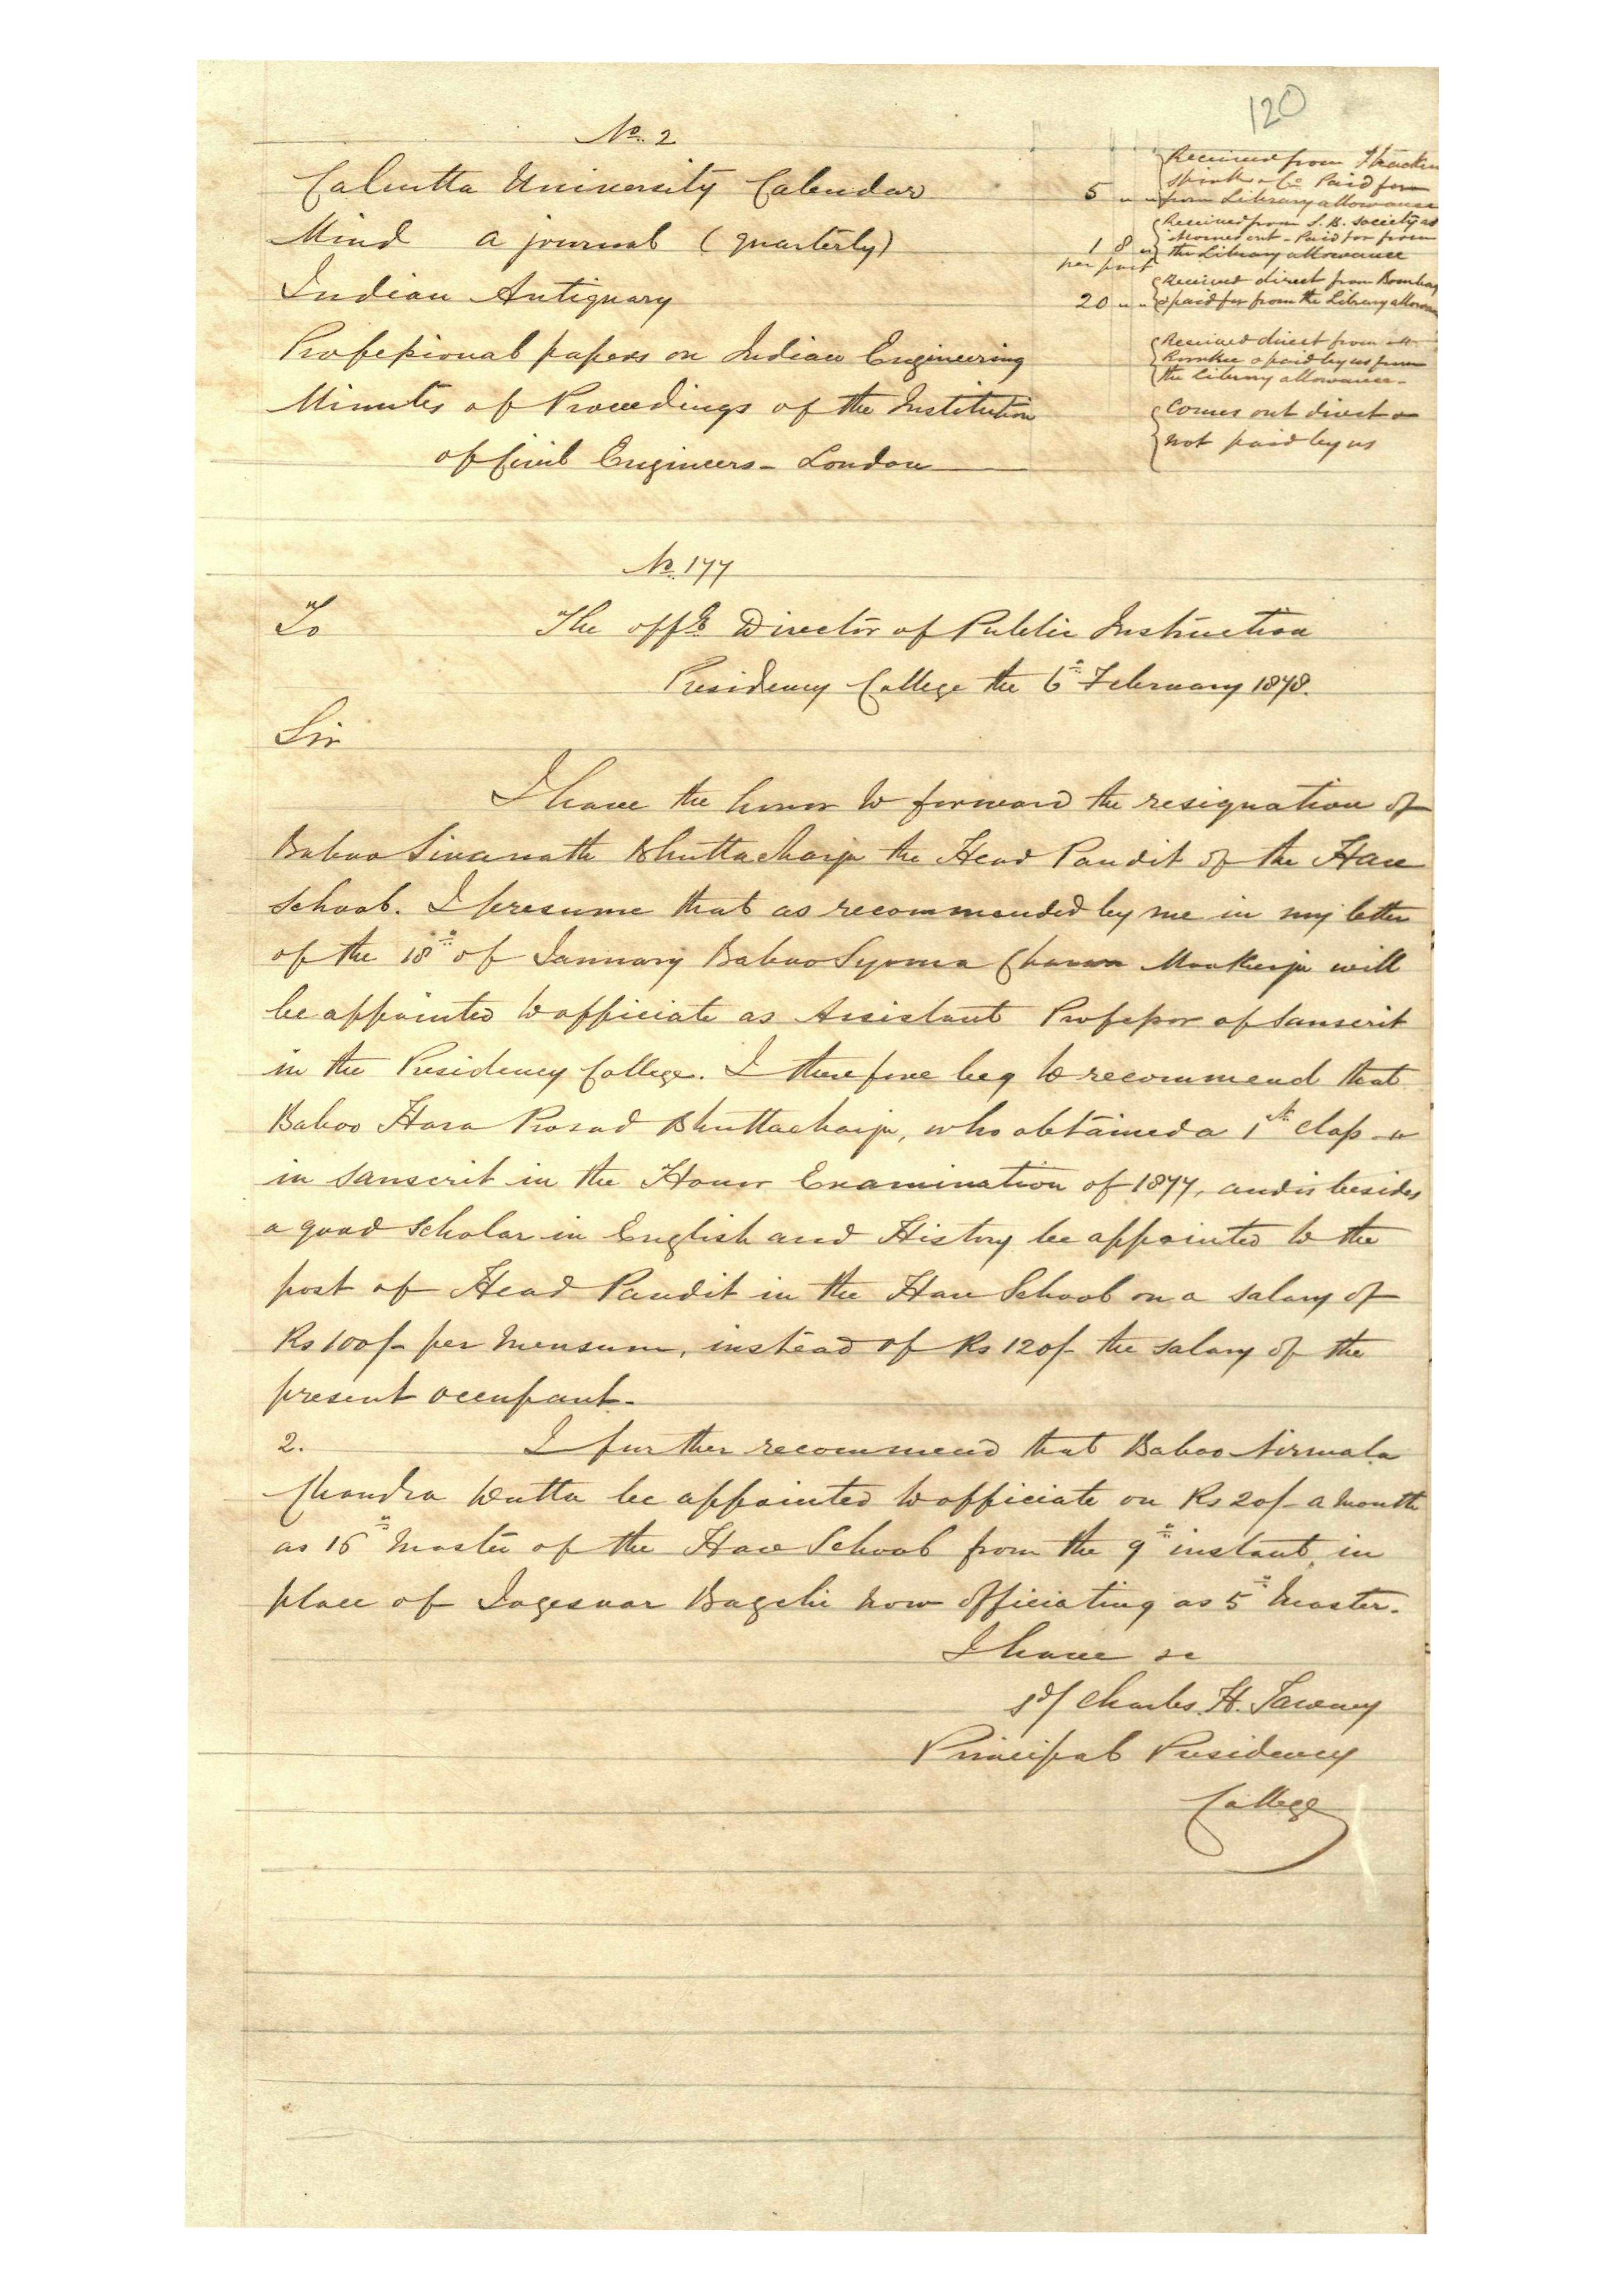 120
No. 2
Calcutta University Calendar 5 " " { Received from Thacker
Spink & Co. Paid for
from Library allowance
Mind a journal (quarterly) 1 8 " per part { Received from S. B. Society as
it comes out - Paid for from
the Library allowance
Indian Antiquary 20 " " { Received direct from Bombay
& paid for from the Library allowance
Professional papers on Indian Engineering { Received direct from
Roorkee & paid by us from
the Library allowance-
Minutes of Proceedings of the Institution { Comes out direct &
of Civil Engineers - London not paid by us
No. 177
To The offg Director of Public Instruction
Presidency College the 6th February 1878.
Sir
I have the honor to forward the resignation of
Baboo Sivanath Bhuttacharja the Head Pandit of the Hare
School. I presume that as recommended by me in my letter
of the 18th of January Baboo Syoma Charan Mookerja will
be appointed to officiate as Assistant Professor of Sanscrit
in the Presidency College. I therefore beg to recommend that
Baboo Hara Prosad Bhuttacharja, who obtained a 1st class
in Sanscrit in the Honor Examination of 1877, and is besides
a good scholar in English and History be appointed to the
post of Head Pandit in the Hare School on a salary of
Rs 100/- per mensum, instead of Rs 120/- the salary of the
present occupant-
2. I further recommend that Baboo Nirmala
Chandra Dutta be appointed to officiate on Rs 20/- a month
as 16th Master of the Hare School from the 9th instant, in
place of Jogeswar Bagchi now officiating as 5th Master.
I have &c
sd/ Charles. H. Tawney
Principal Presidency
College